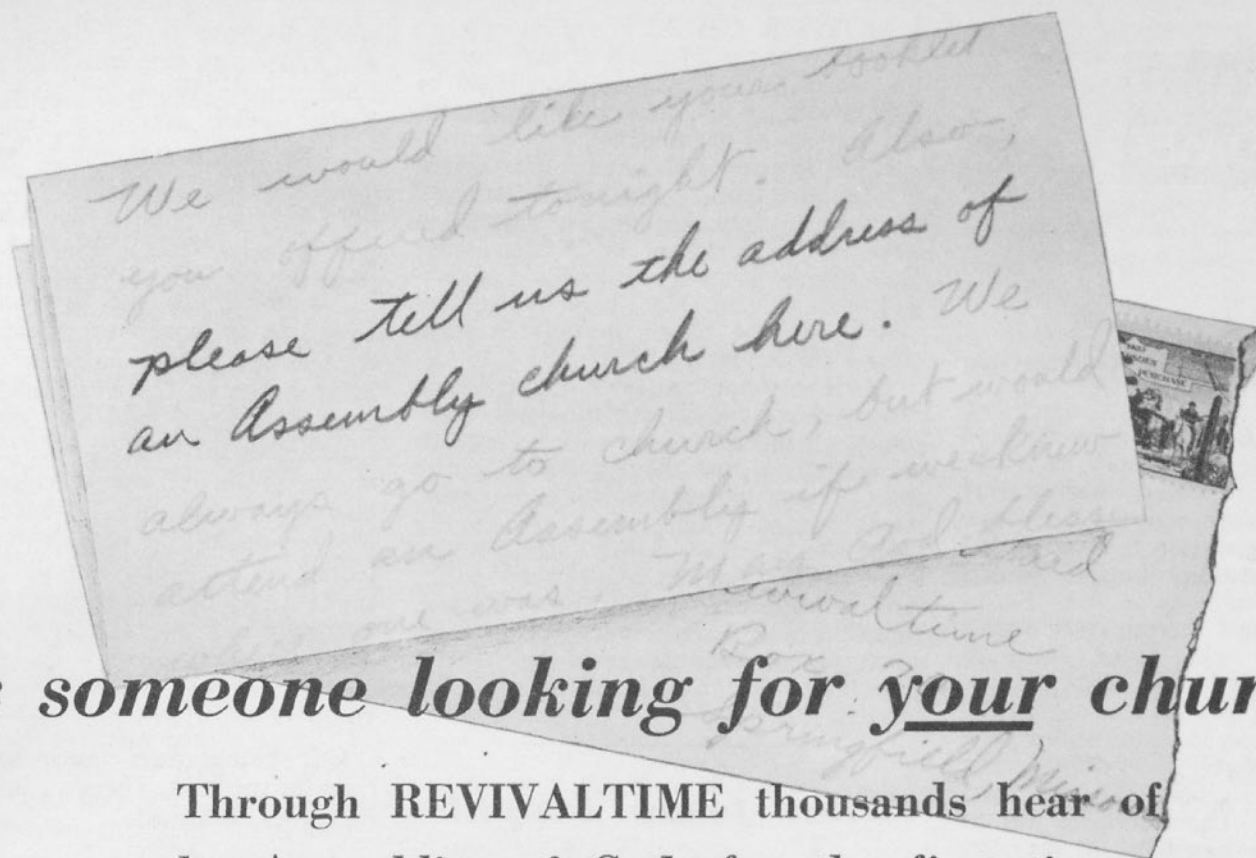 We would like your booklet
you offered tonight. Also,
please tell us the address of
an Assembly church here. We
always go to church, but would
attend an Assembly if we knew
where one was. May God bless
Revivaltime
Box 70
Springfield, Misso
someone looking for your chur
Through REVIVALTIME thousands hear of